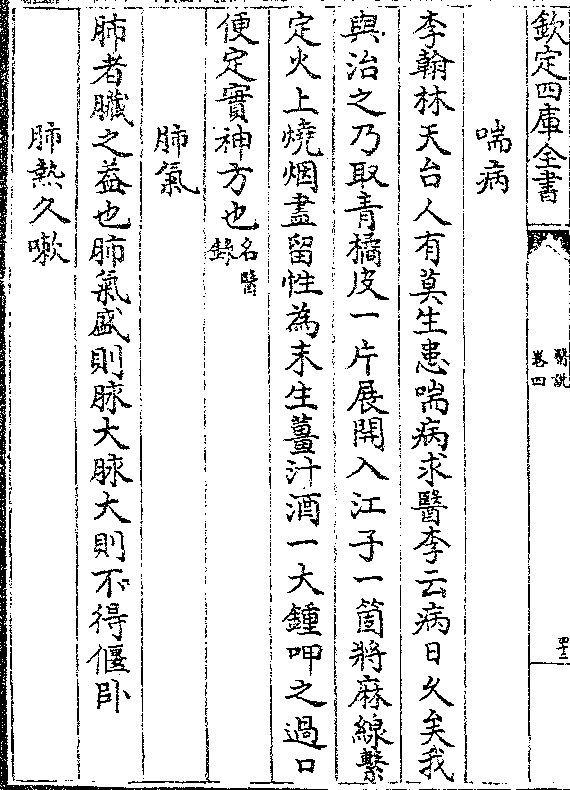 欽定四庫全書
醫說
卷四
喘病
李翰林天台人有莫生患喘病求醫李云病日久矣我
與治之乃取青橘皮一片展開入江子一箇將麻線繫
定火上燒烟盡留性為末生薑汁酒一大鍾呷之過口
便定實神方也名醫
錄
肺氣
肺者臟之益也肺氣盛則脉大脉大則不得偃卧
肺熱久嗽